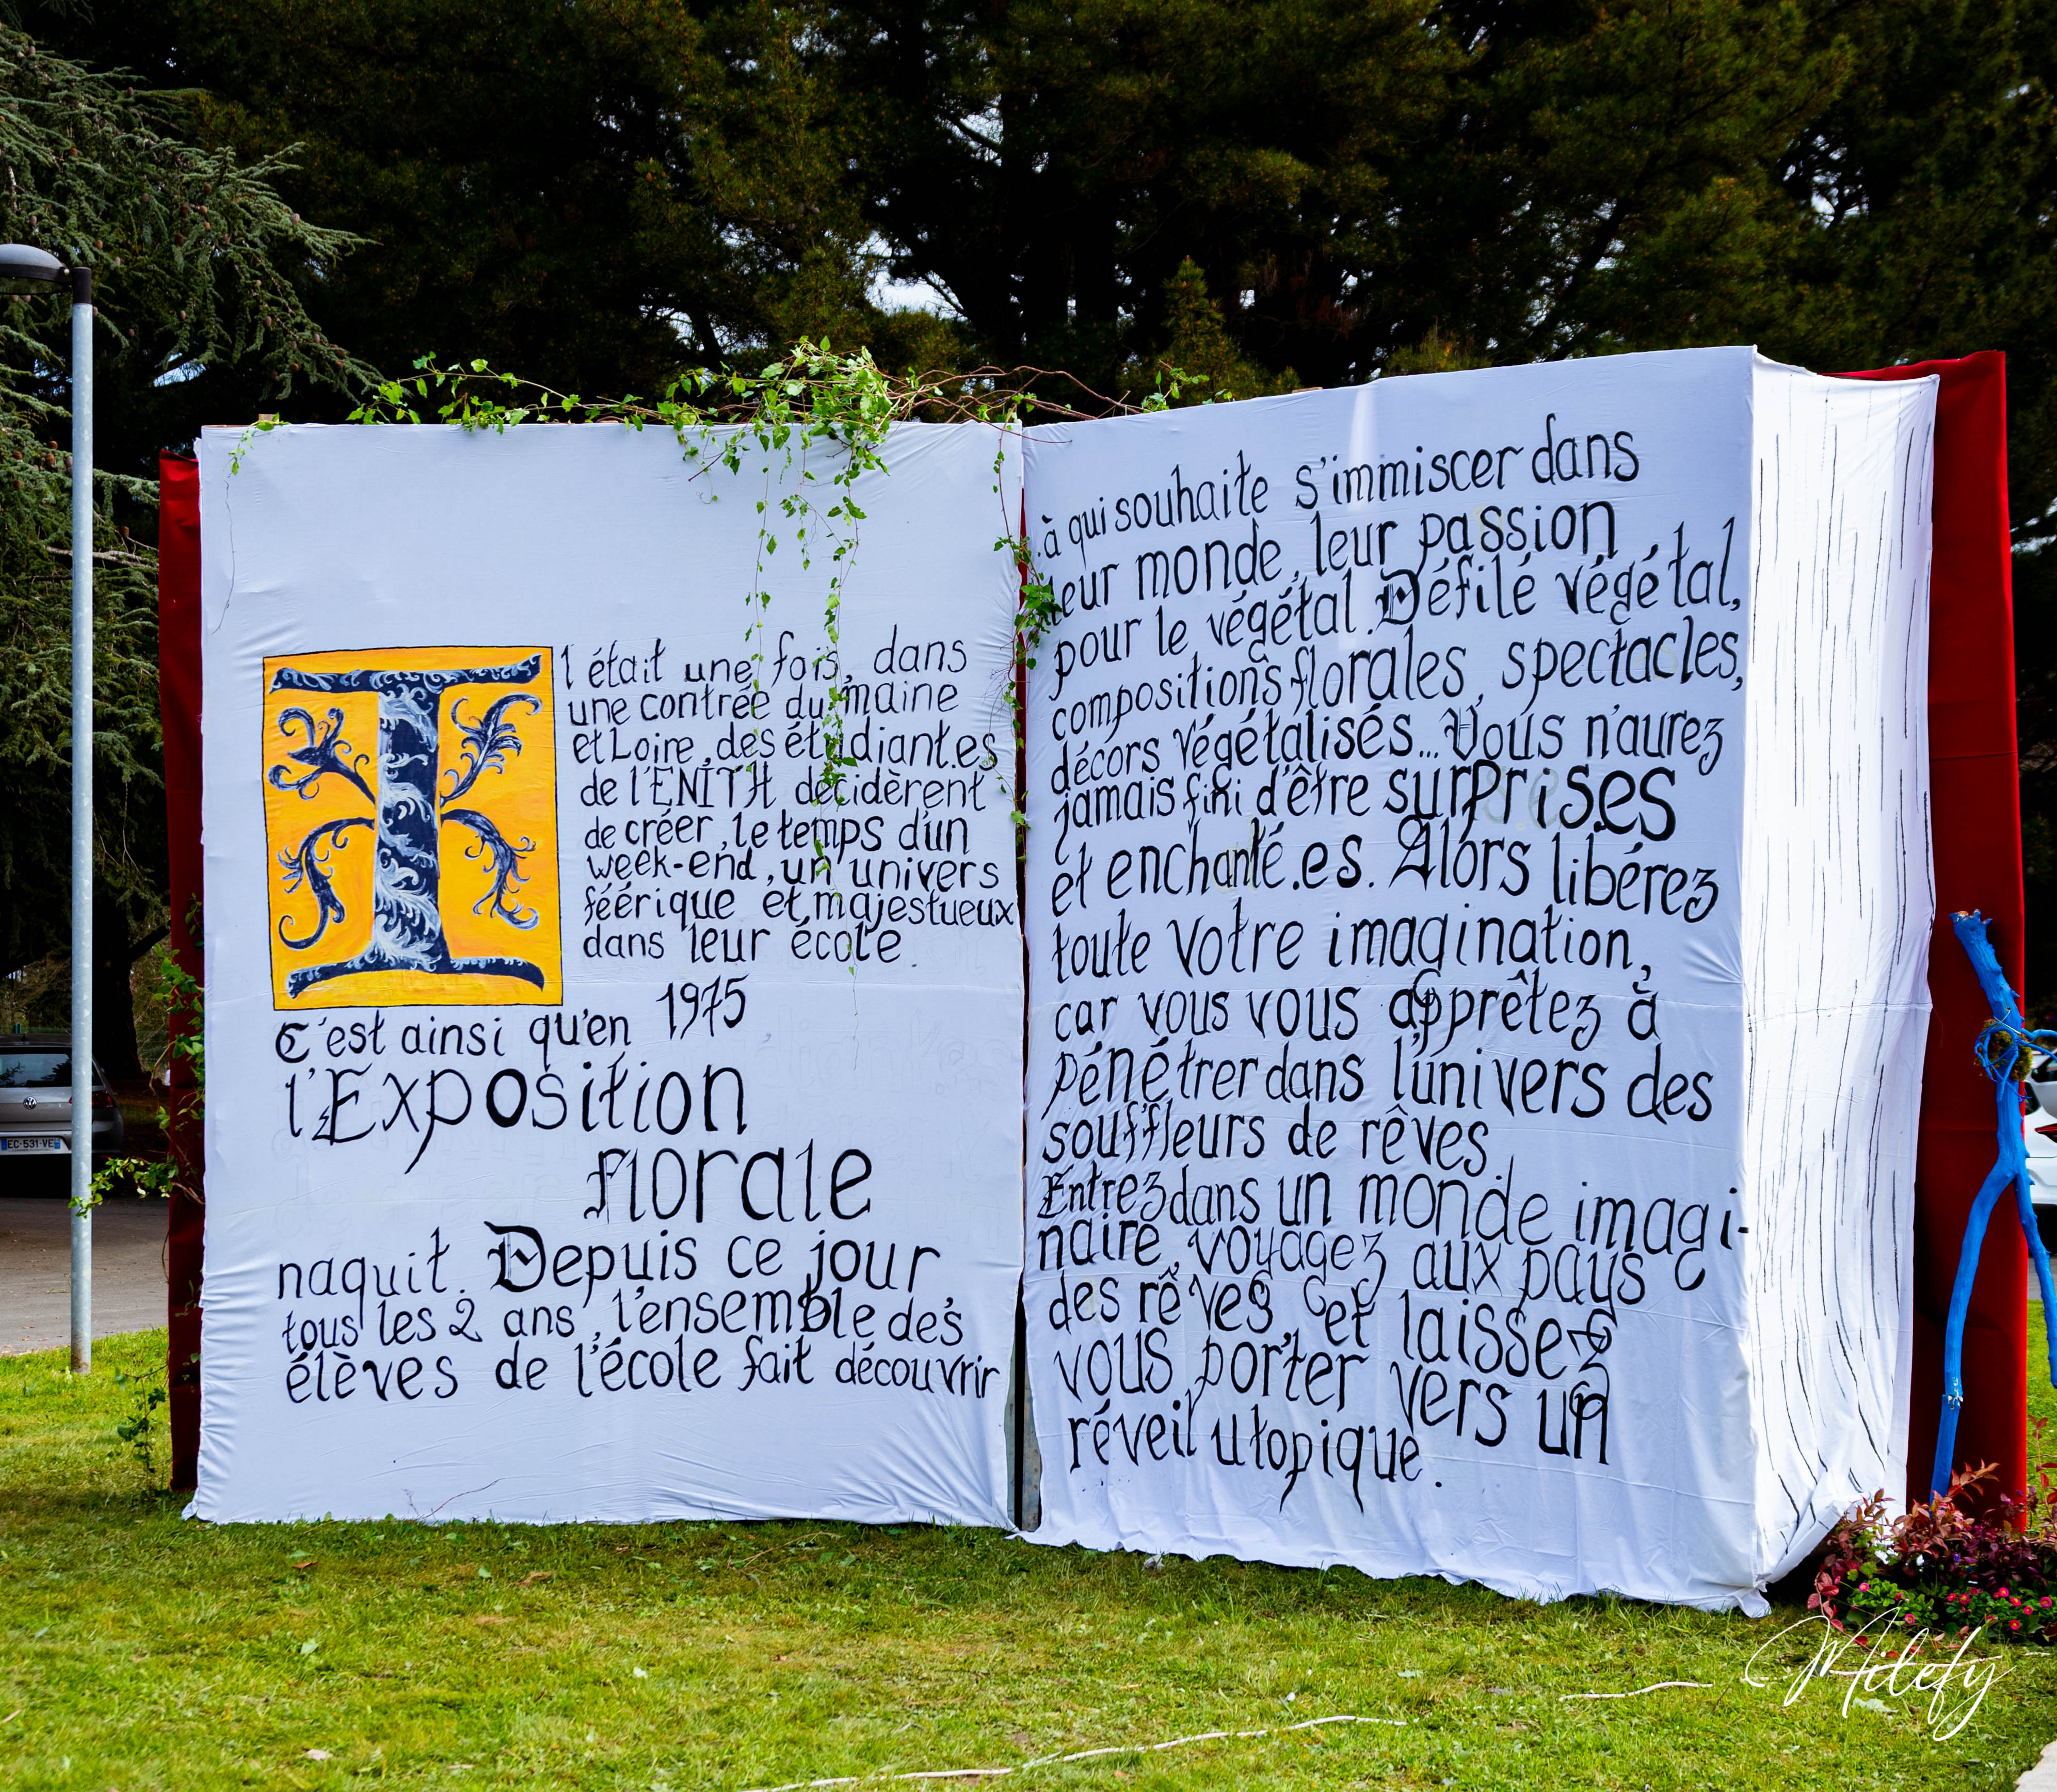 Il était une fois, dans
une contrée du maine
et Loire, des étudiant.es
de l'ENITH décidèrent
de créer, le temps d'un
week-end, un univers
féérique et majestueux
dans leur école.
C'est ainsi qu'en 1975
l'Exposition
florale
naquit. Depuis ce jour,
tous les 2 ans, l'ensemble des
élèves de l'école fait découvrir
à qui souhaite s'immiscer dans
leur monde, leur passion
pour le végétal. Défilé végétal,
compositions florales, spectacles,
décors végétalisés... Vous n'aurez
jamais fini d'être surpris.es
et enchanté.es. Alors libérez
toute votre imagination,
car vous vous apprêtez à
pénétrer dans l'univers des
souffleurs de rêves
Entrez dans un monde imagi-
naire, voyagez aux pays
des rêves, et laissez
vous porter vers un
réveil utopique.
EC-531-VE
Milefy